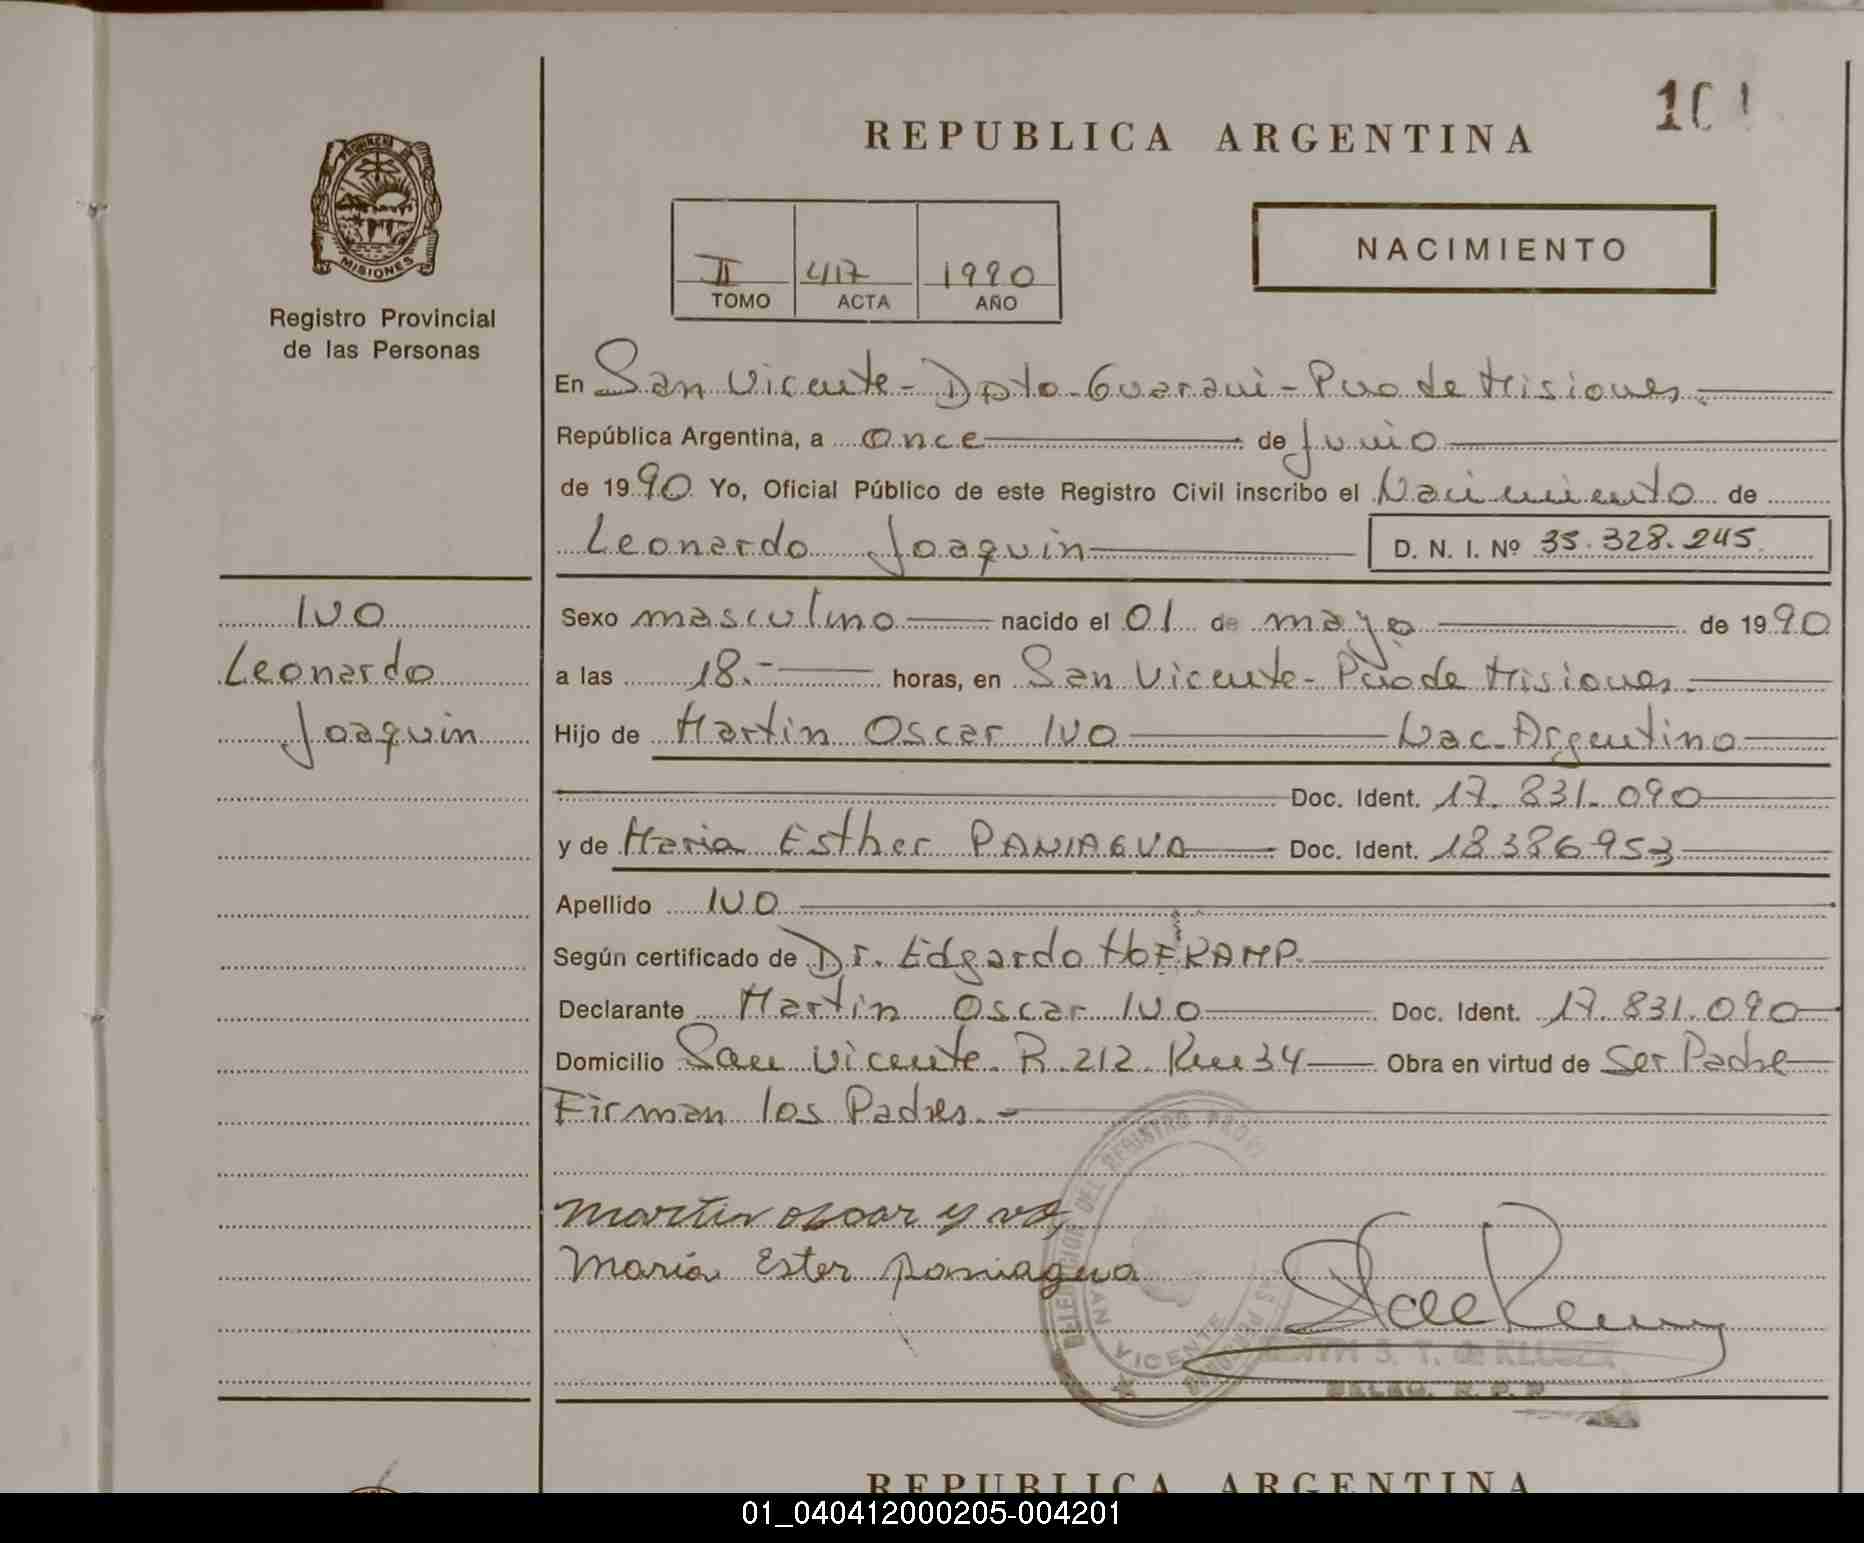 REPUBLICA ARGENTINA
PROVINCIA DE
MISIONES
Registro Provincial
de las Personas
II 417 1990
TOMO ACTA AÑO
NACIMIENTO
En San Vicente - Dpto - Guaraní - Pcia de Misiones.
República Argentina, a once de Junio
de 1990 Yo, Oficial Público de este Registro Civil inscribo el Nacimiento de
Leonardo Joaquin D. N. I. Nº 35.328.245
IVO
Leonardo
Joaquin
Sexo masculino nacido el 01 de mayo de 1990
a las 18.- horas, en San Vicente - Pcia de Misiones.
Hijo de Martin Oscar IVO Nac. Argentino
Doc. Ident. 17.831.090
y de Maria Esther PANIAGUA Doc. Ident. 18386953
Apellido IVO
Según certificado de Dr. Edgardo HOFKAMP.
Declarante Martin Oscar IVO Doc. Ident. 17.831.090
Domicilio San Vicente. R. 212. Km 34 Obra en virtud de Ser Padre
Firman los Padres.-
martin oscar yvo
Maria Ester paniagua
DELEGACION DEL REGISTRO
SAN VICENTE
S. T. de
DELEG. R. P. P.
REPUBLICA ARGENTINA
01_040412000205-004201